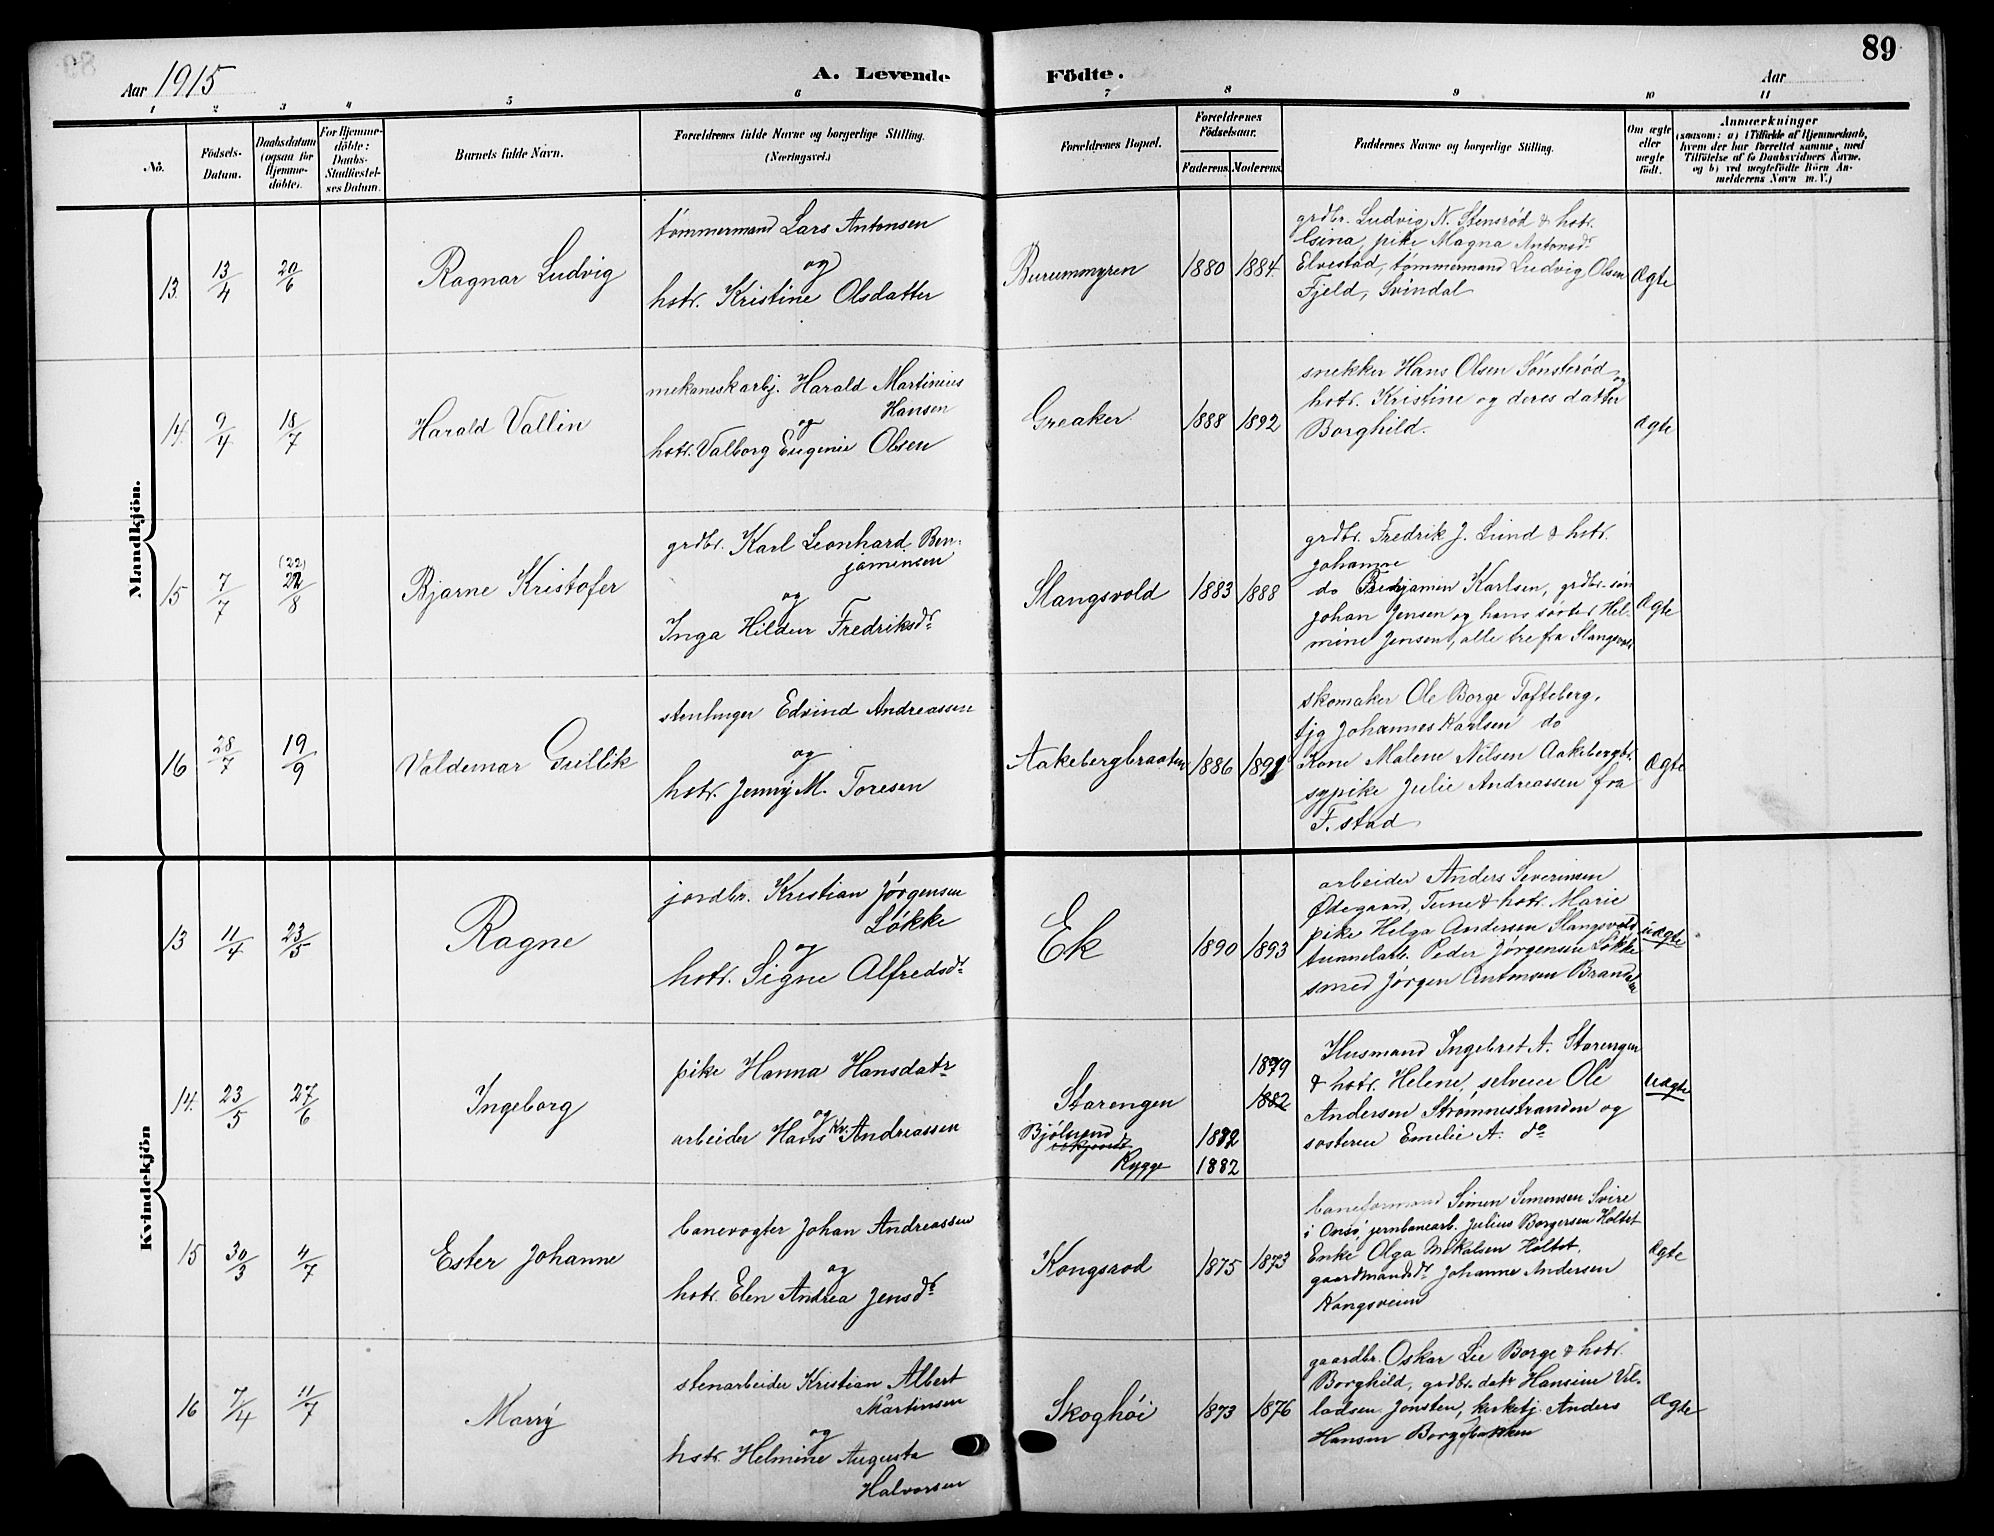 89
Aar 1915
A. Levende Födte.
Aar
1 2 3 4 5 6 7 8 9 10 11
Nö.
Födsels-Datum.
Daabsdatum (ogsaa for Hjemme-döbte).
For Hjemme-döbte: Daabs-Stadfæstel-ses Datum.
Barnets fulde Navn.
Forældrenes fulde Navne og borgerlige Stilling. (Næringsvei.)
Forældrenes Bopæl.
Forældrenes Födselsaar.
Faderens. Moderens.
Faddernes Navne og borgerlige Stilling.
Om ægte eller uægte födt.
Anmærkninger (saasom: a) i Tilfælde af Hjemmedaab, hvem der har forrettet samme, med Tilföielse af to Daabsvidners Navne, og b) ved uægtefödte Börn Anmelderens Navn m. V.)
Mandkjön.
13. 13/4 20/6
Ragnar Ludvig
tømmermand Lars Antonsen
og
hstr. Kristine Olsdatter
Burummyren
1880 1884
grdbr. Ludvig N. Stensrød & hstr.
Elvestad, tømmermand Ludvig Olsen
Fjeld, Svindal
Ægte
14. 9/4 18/7
Harald Vallin
mekaneskarbj. Harald Martinius
Hansen
og
hstr. Valborg Eugenie Olsen
Greaker
1888 1892
snekker Hans Olsen Sønsterød og
hstr. Kristine og deres datter
Borghild.
Ægte
15 7/7 (22) 22/8
Bjarne Kristofer
grdbr. Karl Leonhard Ben-
jamensen
og
Inga Hildur Fredriksdr
Slangsvold
1883 1888
grdbr. Fredrik J. Lund & hstr.
Johanne
do Benjamin Karlsen, grdbr.søn
Johan Jensen og hans søster Hel-
mine Jensen, alle tre fra Slangsvold
Ægte
16 28/7 19/9
Valdemar Gullik
stenhuger Edvind Andreassen
og
hstr. Jenny M. Toresen
Aakebergbraaten
1886 1891
skomaker Ole Borge Tofteberg,
tjg Johannes Karlsen do
Kone Malene Nilsen Aakebergbr.
sypike Julie Andreassen fra
F.stad
Ægte
Kvindekjön
13 11/4 23/5
Ragne
jordbr. Kristian Jørgensen
Løkke
og
hstr. Signe Alfredsdr
Ek
1890 1893
arbeider Anders Severinsen
Ødegaard, Tune & hstr. Marie
pike Helga Andersen Slangsvold
tunnelarb. Peder Jørgensen Løkke
smed Jørgen Antonsen
uægte
14. 23/5 27/6
Ingeborg
pike Hanna Hansdatr
og
arbeider Hans Kr. Andreassen
Starengen
Rygge
1879
1882
1882
1882
Husmand Ingebret A. Starengen
& hstr. Helene, selveier Ole
Andersen Strømnestranden og
søsteren Emelie A. do
uægte
15 30/3 4/7
Ester Johanne
banevogter Johan Andreassen
og
hstr. Elen Andrea Jensdr
Kongsrod
1875 1873
baneformand Simen Simensen Svire
i Onsø, jernbanearb. Julius Borgersen Holtet
Enke Olga Mikalsen Holtet,
gaardmandsdr Johanne Andersen
Kongsveien
Ægte
16 7/4 11/7
Marry
stenarbeider Kristian Albert
Martinsen
og
hstr. Helmine Augusta
Halvorsen
Skoghöi
1873 1876
gaardbr. Oskar Lie Borge & hstr.
Borghild, grdbr.datr Hansine Val-
ladsen Jonsten, kirketj. Anders
Hansen Borgebakken
Ægte